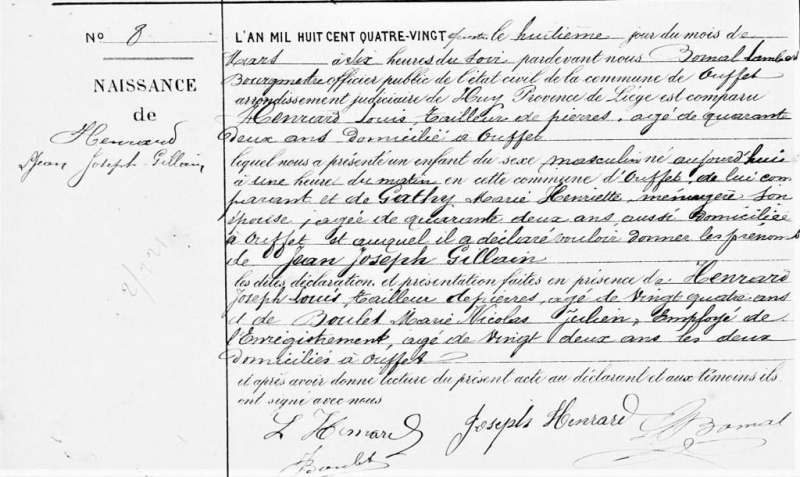 No 8
NAISSANCE
de
Henrard
Jean Joseph Gillain
L'AN MIL HUIT CENT QUATRE-VINGT quatre le huitième jour du mois de
Mars à six heures du soir pardevant nous Bomal Lambert
Bourgmestre officier public de l'état civil de la commune de Ouffet
arrondissement judiciaire de Huy Province de Liège est comparu
Henrard Louis, tailleur de pierres, agé de quarante
deux ans domicilié à Ouffet
lequel nous a présenté un enfant du sexe masculin né aujourd'hui
à une heure du matin en cette commune d'Ouffet, de lui com
parant et de Gathy Marie Henriette, ménagère son
épouse, agée de quarante deux ans, aussi domiciliée
à Ouffet et auquel il a déclaré vouloir donner les prénoms
de Jean Joseph Gillain
les dites déclaration et présentation faites en présence de Henrard
Joseph Louis, tailleur de pierres, agé de vingt quatre ans
et de Boulet Marie Nicolas Julien, Employé de
l'Enregistrement, agé de vingt deux ans les deux
domiciliés à Ouffet
et après avoir donné lecture du présent acte au déclarant et aux témoins ils
ont signé avec nous
L Henrard Joseph Henrard L Bomal
Boulet